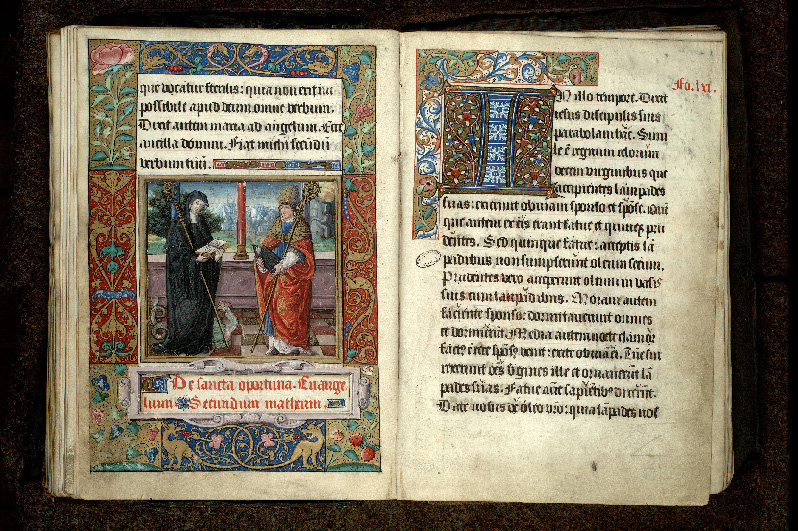 que vocatur sterilis: quia non erit im
possibile apud deum omne verbum.
Dixit autem maria ad angelum. Ecce
ancilla domini. Fiat michi secundū
verbum tuū.
De sancta oportuna. Euange
lium Secundum matheum
Fo. lxi.
IN illo tempore. Dixit
iesus discipulis suis
parabolam hāc. Simi
le ē regnum celorum
decem virginibus que
accipientes lampades
suas: exierunt obuiam sponso et spōse. Quin
que autem ex eis erant fatue et quinque pru
dentes. Sed quinque fatue: acceptis lā
padibus non sumpserunt oleum secum.
Prudentes vero acceperunt oleum in vasis
suis cum lampadibus. Moram autem
faciente sponso: dormitauerunt omnes
et dormierūt. Media autem nocte clamor
factꝰ ē: ecce spōsꝰ venit: exite obuiā ei. Tūc sur
rexerunt oēs virgines ille et ornauerūt lā
pades suas. Fatue aūt sapiētibꝰ dixerūt.
Date nobis de oleo vr̄o: quia lāpades nos